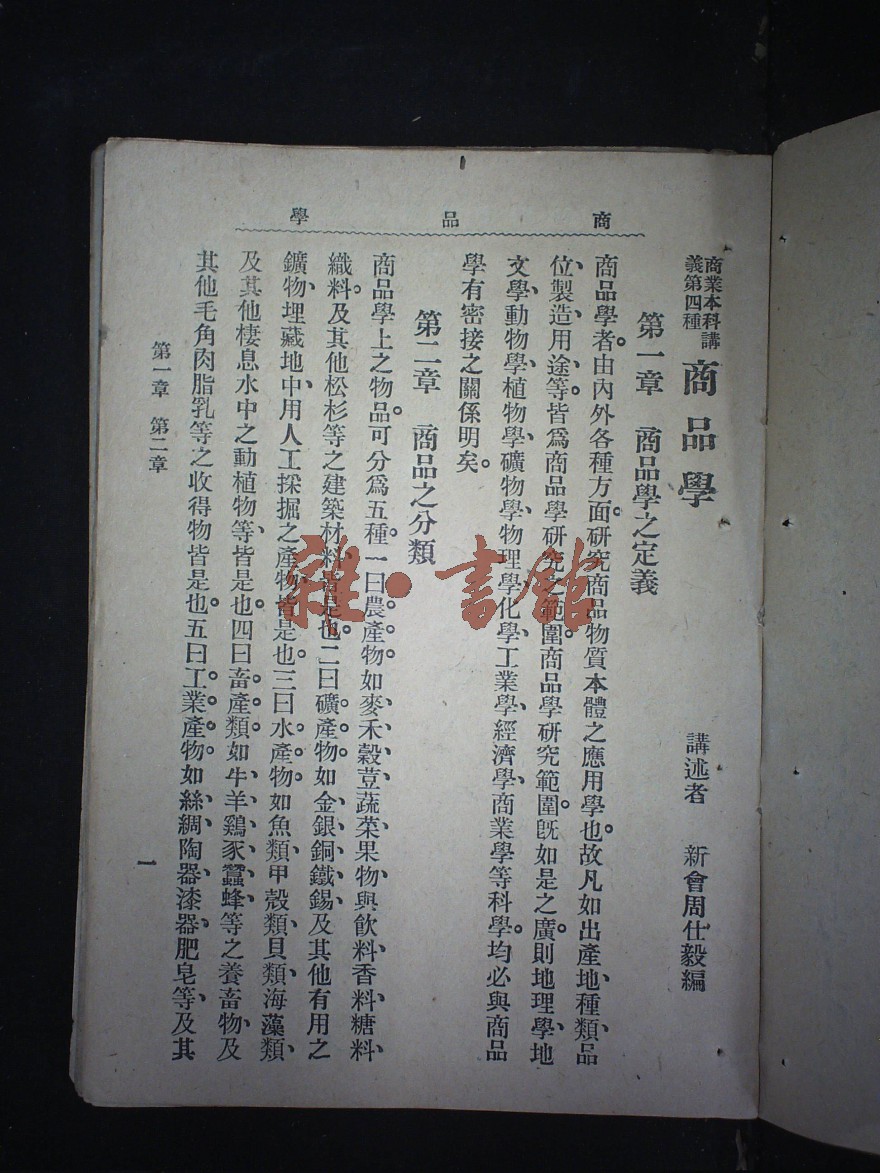 商品學
商業本科講
義第四種
商品學
講述者　新會周仕毅編
第一章　商品學之定義
商品學者。由內外各種方面。研究商品物質本體之應用學也。故凡如出產地、種類、品
位、製造、用途、等。皆爲商品學研究之範圍。商品學研究範圍。旣如是之廣。則地理學、地
文學、動物學、植物學、礦物學、物理學、化學、工業學、經濟學、商業學等科學。均必與商品
學有密接之關係明矣。
第二章　商品之分類
商品學上之物品。可分爲五種。一曰農產物。如麥、禾、穀、荳、蔬、菜、果物、與飮料、香料、糖料、
織料。及其他松杉等之建築材料、皆是也。二曰礦產物。如金、銀、銅、鐵、錫、及其他有用之
鑛物、埋藏地中、用人工採掘之產物皆是也。三曰水產物。如魚類、甲殼類、貝類、海藻類、
及其他棲息水中之動植物等、皆是也。四曰畜產類。如牛、羊、鷄、豕、蠶、蜂、等之養畜物、及
其他毛角肉脂乳等之收得物皆是也。五曰工業產物。如絲、綢、陶器、漆器、肥皂、等、及其
第一章　第二章
一
雜·書館